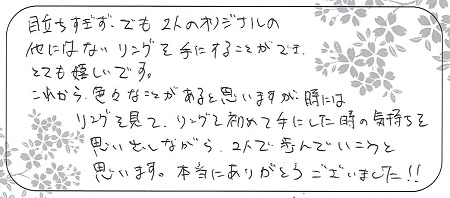 目立ちすぎず、でも 2人のオリジナルの
他にはない リングを手にすることができ、
とても嬉しいです。
これから、色々なことがあると思いますが、時には
リングを見て、リングを初めて手にした時の気持ちを
思い出しながら、2人で歩んでいこうと
思います。本当にありがとうございました!!